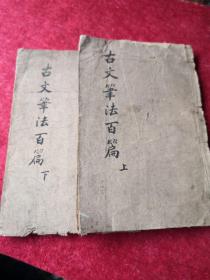 古文筆法百篇
上
古文筆法百篇
下